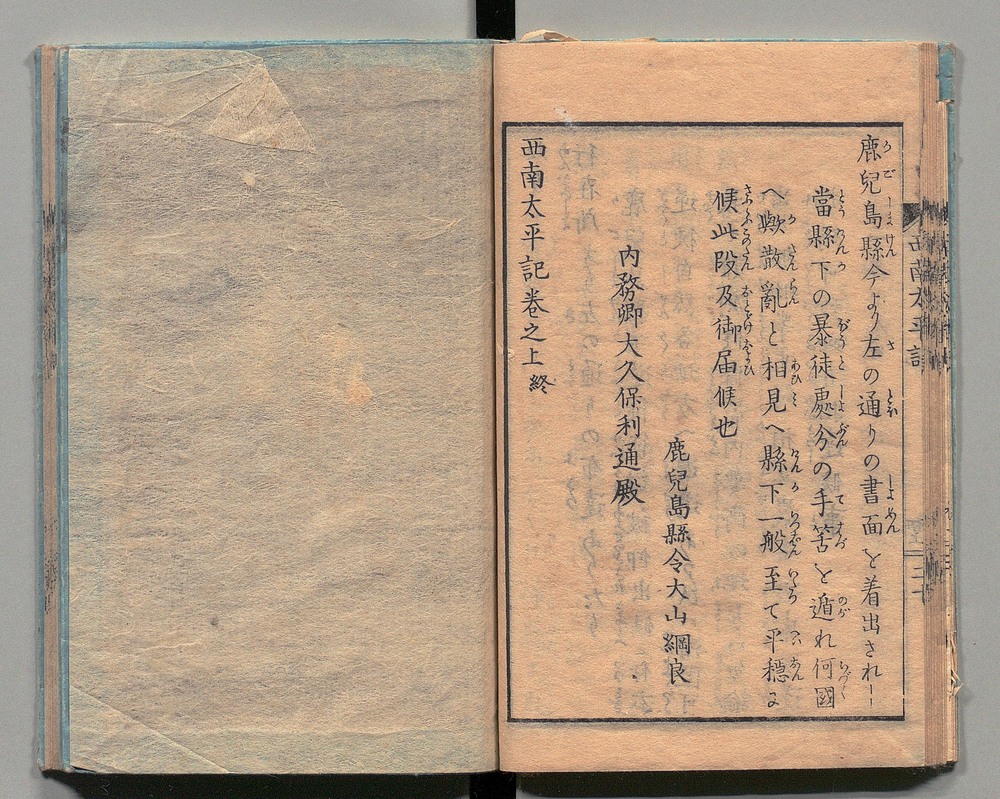 鹿兒島縣令より左の通りの書面を着出されし
當縣下の暴徒處分の手筈を遁れ何國
へ歟散亂と相見へ縣下一般至て平穏に
候此段及御届候也
鹿兒島縣令大山綱良
内務卿大久保利通殿
西南太平記巻之上終
西南太平記